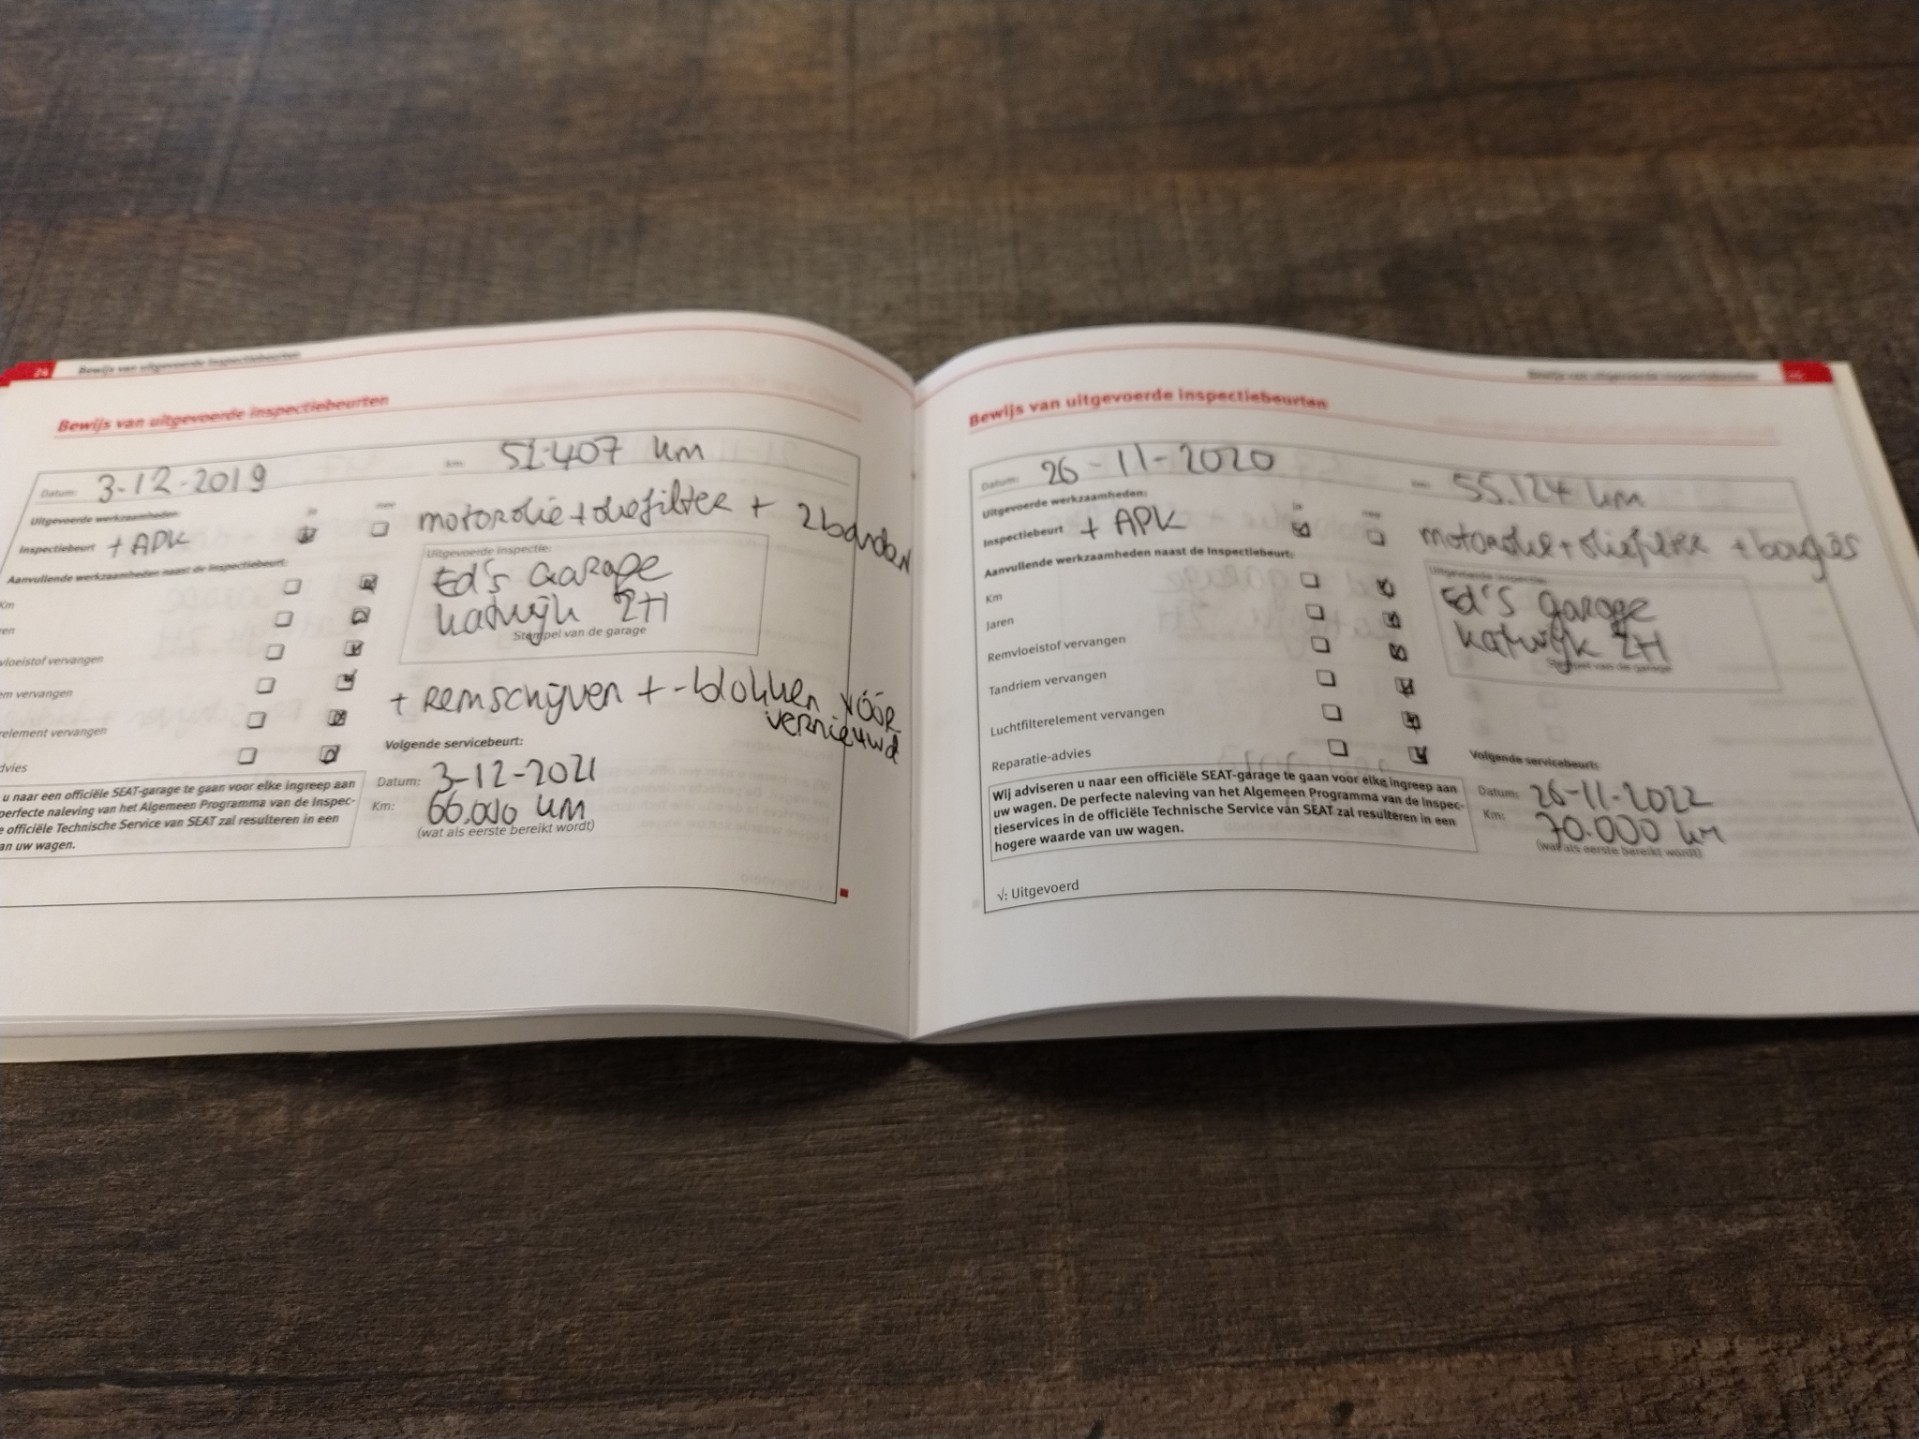 24 Bewijs van uitgevoerde inspectiebeurten
Bewijs van uitgevoerde inspectiebeurten
Datum: 3-12-2019 Km 51.407 km
Uitgevoerde werkzaamheden: ja nee
Inspectiebeurt + APK motorolie + oliefilter + 2 banden
Aanvullende werkzaamheden naast de inspectiebeurt:
Uitgevoerde inspectie:
Ed's Garage
Katwijk ZH
Stempel van de garage
Km
ren
vloeistof vervangen
em vervangen
relement vervangen
dvies
+ Remschijven + -blokken vóór
vernieuwd
Volgende servicebeurt:
Datum: 3-12-2021
Km: 66.000 km
(wat als eerste bereikt wordt)
u naar een officiële SEAT-garage te gaan voor elke ingreep aan
perfecte naleving van het Algemeen Programma van de Inspec-
e officiële Technische Service van SEAT zal resulteren in een
an uw wagen.
Bewijs van uitgevoerde inspectiebeurten
Bewijs van uitgevoerde inspectiebeurten
Datum: 26-11-2020 55.124 km
Uitgevoerde werkzaamheden: ja nee
Inspectiebeurt + APK motorolie + oliefilter + bougies
Aanvullende werkzaamheden naast de inspectiebeurt:
Uitgevoerde inspectie:
Ed's garage
Katwijk ZH
Stempel van de garage
Km
Jaren
Remvloeistof vervangen
Tandriem vervangen
Luchtfilterelement vervangen
Reparatie-advies
Volgende servicebeurt:
Datum: 26-11-2022
Km: 70.000 km
(wat als eerste bereikt wordt)
Wij adviseren u naar een officiële SEAT-garage te gaan voor elke ingreep aan
uw wagen. De perfecte naleving van het Algemeen Programma van de Inspec-
tieservices in de officiële Technische Service van SEAT zal resulteren in een
hogere waarde van uw wagen.
√: Uitgevoerd